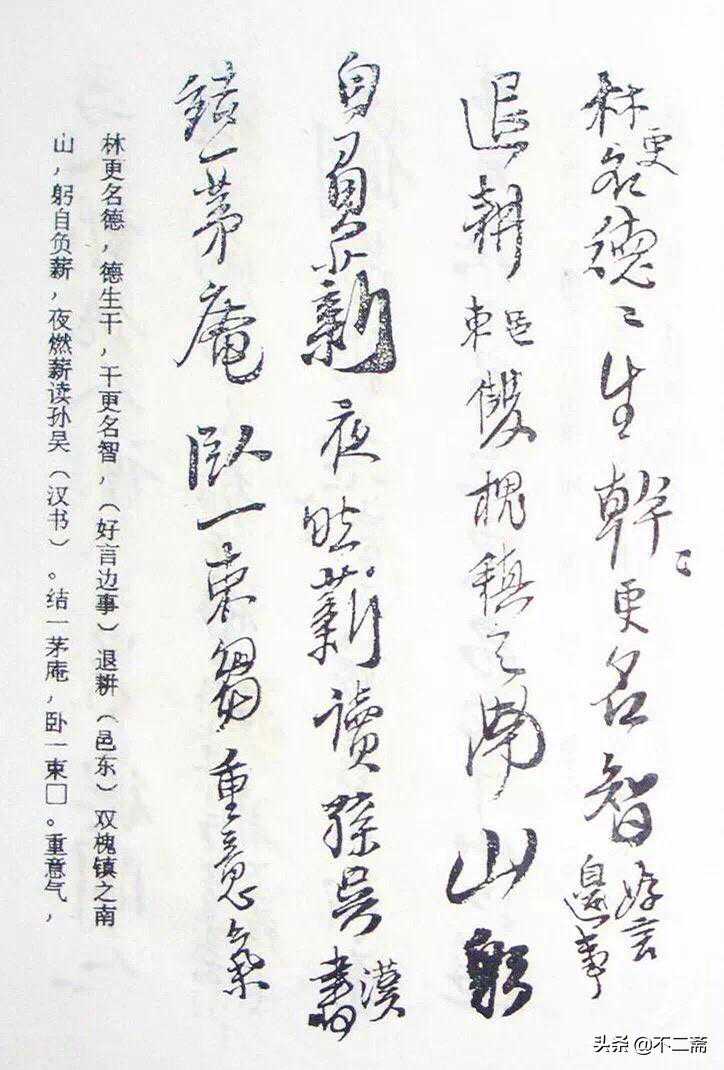 林更名德〻生幹〻更名智好言邊事
退耕邑東雙槐鎮之南山躬
自負薪夜燃薪讀孫吳漢書
結一茅庵臥一束芻重意氣
林更名德，德生干，干更名智，（好言边事）退耕（邑东）双槐镇之南
山，躬自负薪，夜燃薪读孙吴（汉书）。结一茅庵，卧一束□。重意气，
头条 @不二斋